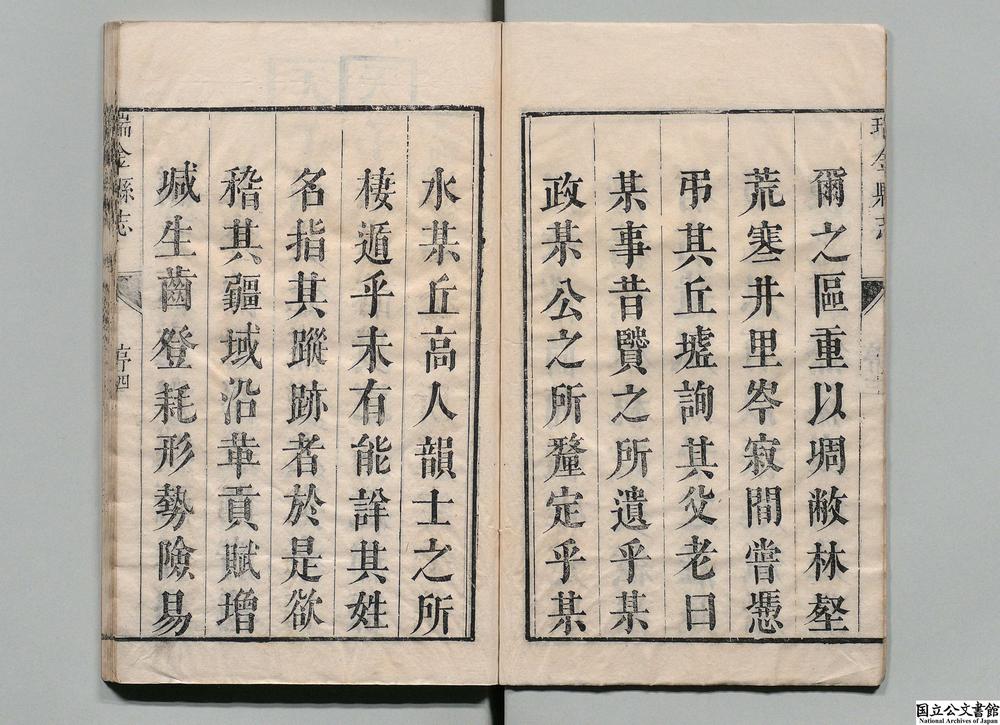 瑞金縣志
爾之區重以堋敝林壑
荒寒井里岑寂間嘗憑
弔其丘墟詢其父老曰
某事昔賢之所遺乎某
政某公之所釐定乎某
水某丘高人韻士之所
棲遁乎未有能詳其姓
名指其蹤跡者於是欲
稽其疆域沿革貢賦增
減生齒登耗形勢險易
瑞金縣志
序四
国立公文書館
National Archives of Japan